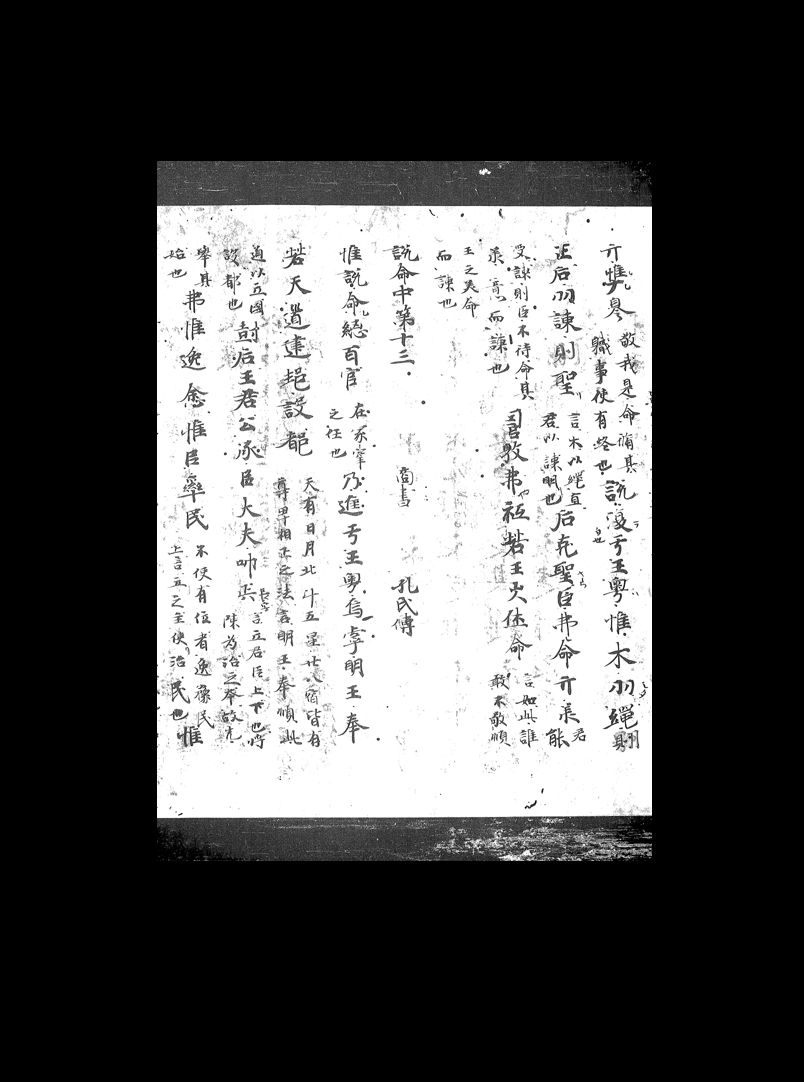 亓惟 敬我是命脩其職事使有終也 說復亏王粤惟木 繩則
正后 諫則聖 言木以繩直君以諫明也 后克聖臣弗命亓羕 君能
受諫則臣不待命其羕意而諫也 敢弗祗若王 休命 言如此誰敢不敬順
王之美命而諫也
說命中第十三 尚書 孔氏傳
惟說命總百官 在冢宰之任也 乃進亏王粤烏虖明王奉
若天道建邦設都 天有日月北斗五星廿八宿皆有尊卑相正之法言明王奉順此
道以立國設都也 后王君公承臣大夫帥 言立君臣上下也將陳為治之本故先
舉其始也 弗惟逸念惟臣率民 不使有位者逸豫民上言立之主使治民也 惟